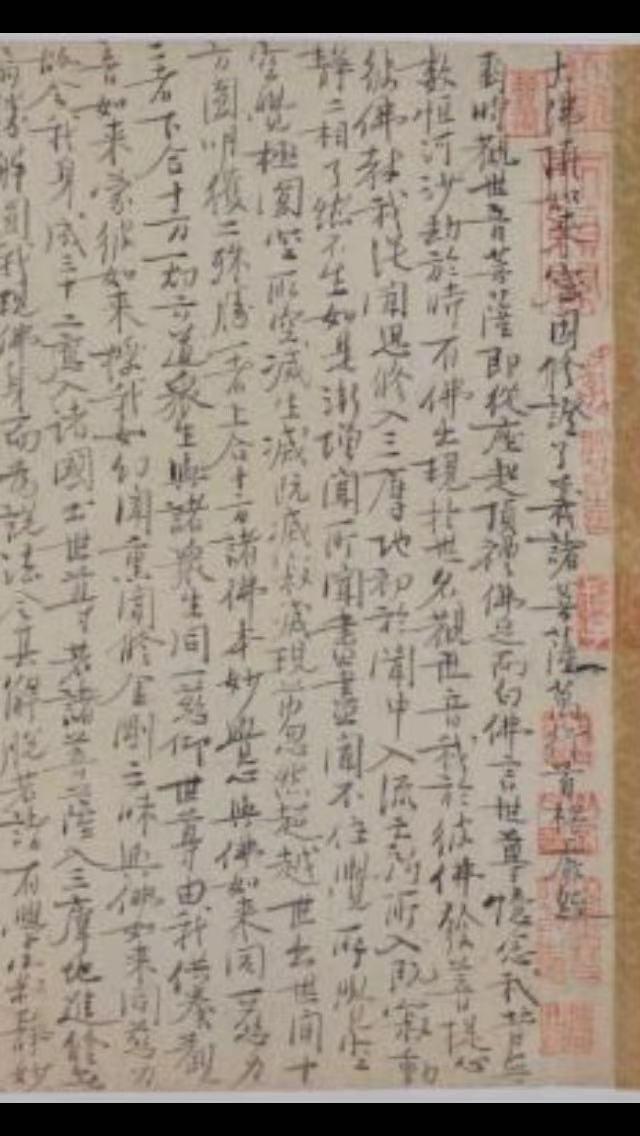 大佛頂如來密因修證了義諸菩薩萬行首楞嚴經
爾時觀世音菩薩即從座起頂禮佛足而白佛言世尊憶念我昔無
數恒河沙劫於時有佛出現於世名觀世音我於彼佛發菩提心
彼佛教我從聞思修入三摩地初於聞中入流亡所所入既寂動
靜二相了然不生如是漸增聞所聞盡盡聞不住覺所覺空
空覺極圓空所空滅生滅既滅寂滅現前忽然超越世出世間十
方圓明獲二殊勝一者上合十方諸佛本妙覺心與佛如來同一慈力
二者下合十方一切六道衆生與諸衆生同一悲仰世尊由我供養觀
音如來蒙彼如來授我如幻聞熏聞修金剛三昧與佛如來同慈力
故令我身成三十二應入諸國土世尊若諸菩薩入三摩地進修
勝解圓我現佛身而為說法令其解脫若諸有學寂妙